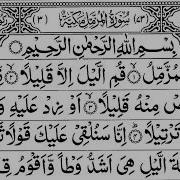 (٧٣) سُوْرَةُ الْمُزَّمِّلِ مَكِّيَّةٌ (٣)
بِسْمِ اللّٰهِ الرَّحْمٰنِ الرَّحِيْمِ
لْمُزَّمِّلُ ۙ قُمِ الَّيْلَ اِلَّا قَلِيْلًا ۙ
صْ مِنْهُ قَلِيْلًا ۙ اَوْ زِدْ عَلَيْهِ وَ
تَرْتِيْلًا ؕ اِنَّا سَنُلْقِيْ عَلَيْكَ قَوْلًا
ةَ الَّيْلِ هِيَ اَشَدُّ وَطْاً وَّاَقْوَمُ قِ